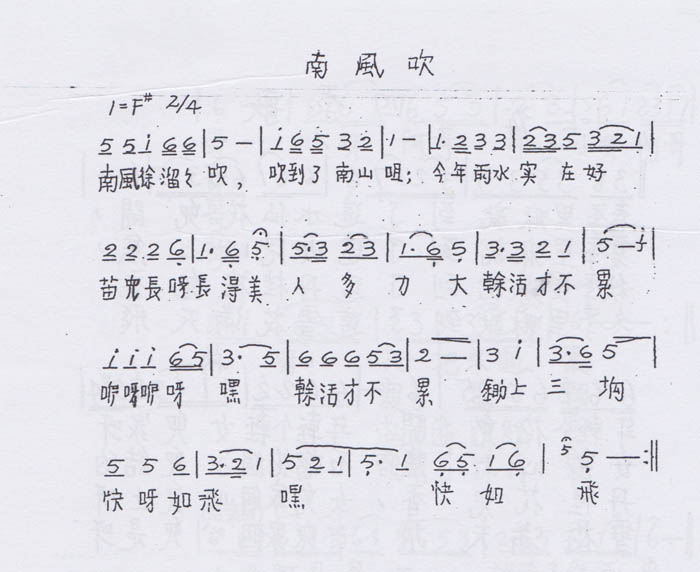 南風吹
1=F# 2/4
5 5 i 6 6 | 5 — | i 6 5 3 2 | 1 — | 1· 2 3 3 | 2 3 5 3 2 1 |
南風徐溜々吹, 吹到了南山咀; 今年雨水实在好
2 2 2 6 | 1· 6 5 | 5·3 2 3 | 1·6 5 | 3·3 2 1 | 5 — i |
苗兒長呀長得美 人多力大 幹活才不累
i i i 6 5 | 3· 5 | 6 6 6 5 3 | 2 — | 3 i | 3·6 5 |
咿呀咿呀 嘿 幹活才不累 鋤上三垧
5 5 6 | 3·2 1 | 5 2 1 | 5· 1 6 5 1 6 | 5 5 — :||
快呀如飛 嘿 快如飛